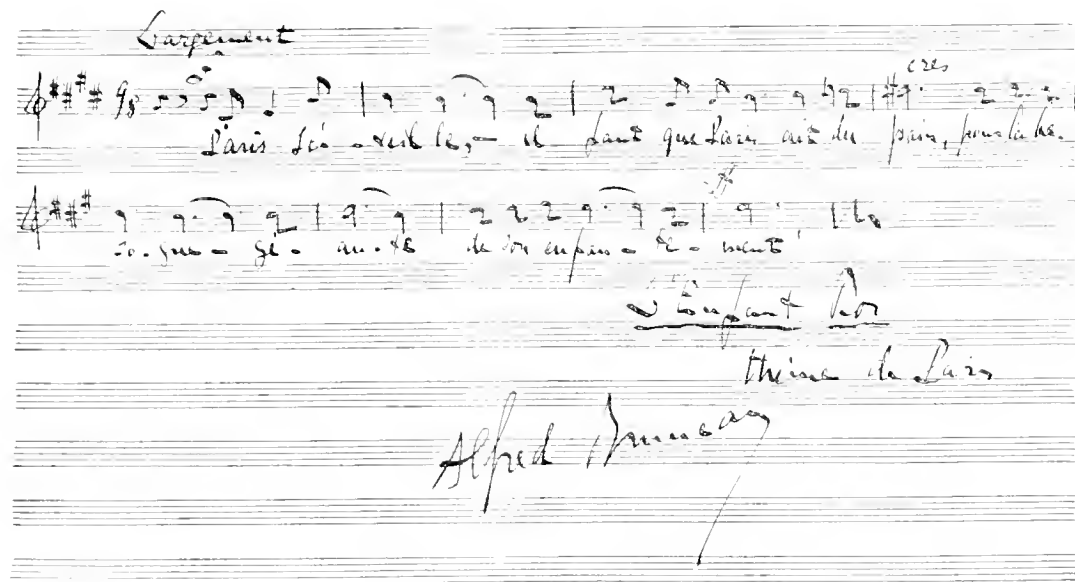 Largement
Paris s'é-veil-le, - il faut que Paris ait du pain, pour la be-
so-gne gé-an-te de son enfan-te-ment
L'Enfant Roi
thème de Paris
Alfred Bruneau